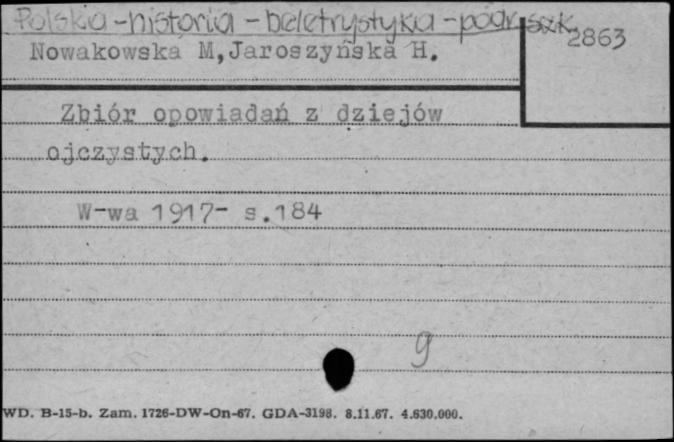 Polska-historia-beletrystyka-podr. szk.
2863
Nowakowska M,Jaroszyńska H.
Zbiór opowiadań z dziejów
ojczystych.
W-wa 1917- s.184
9
WD. B-15-b. Zam. 1726-DW-On-67. GDA-3198. 8.11.67. 4.630.000.